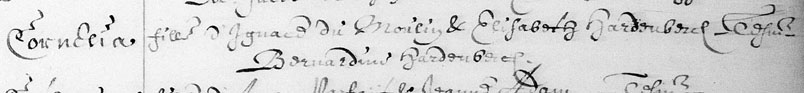 Cornelia fille d'Ignace du Moulin & Elisabeth Hardenberch Tesm:
Bernardins Hardenberch.